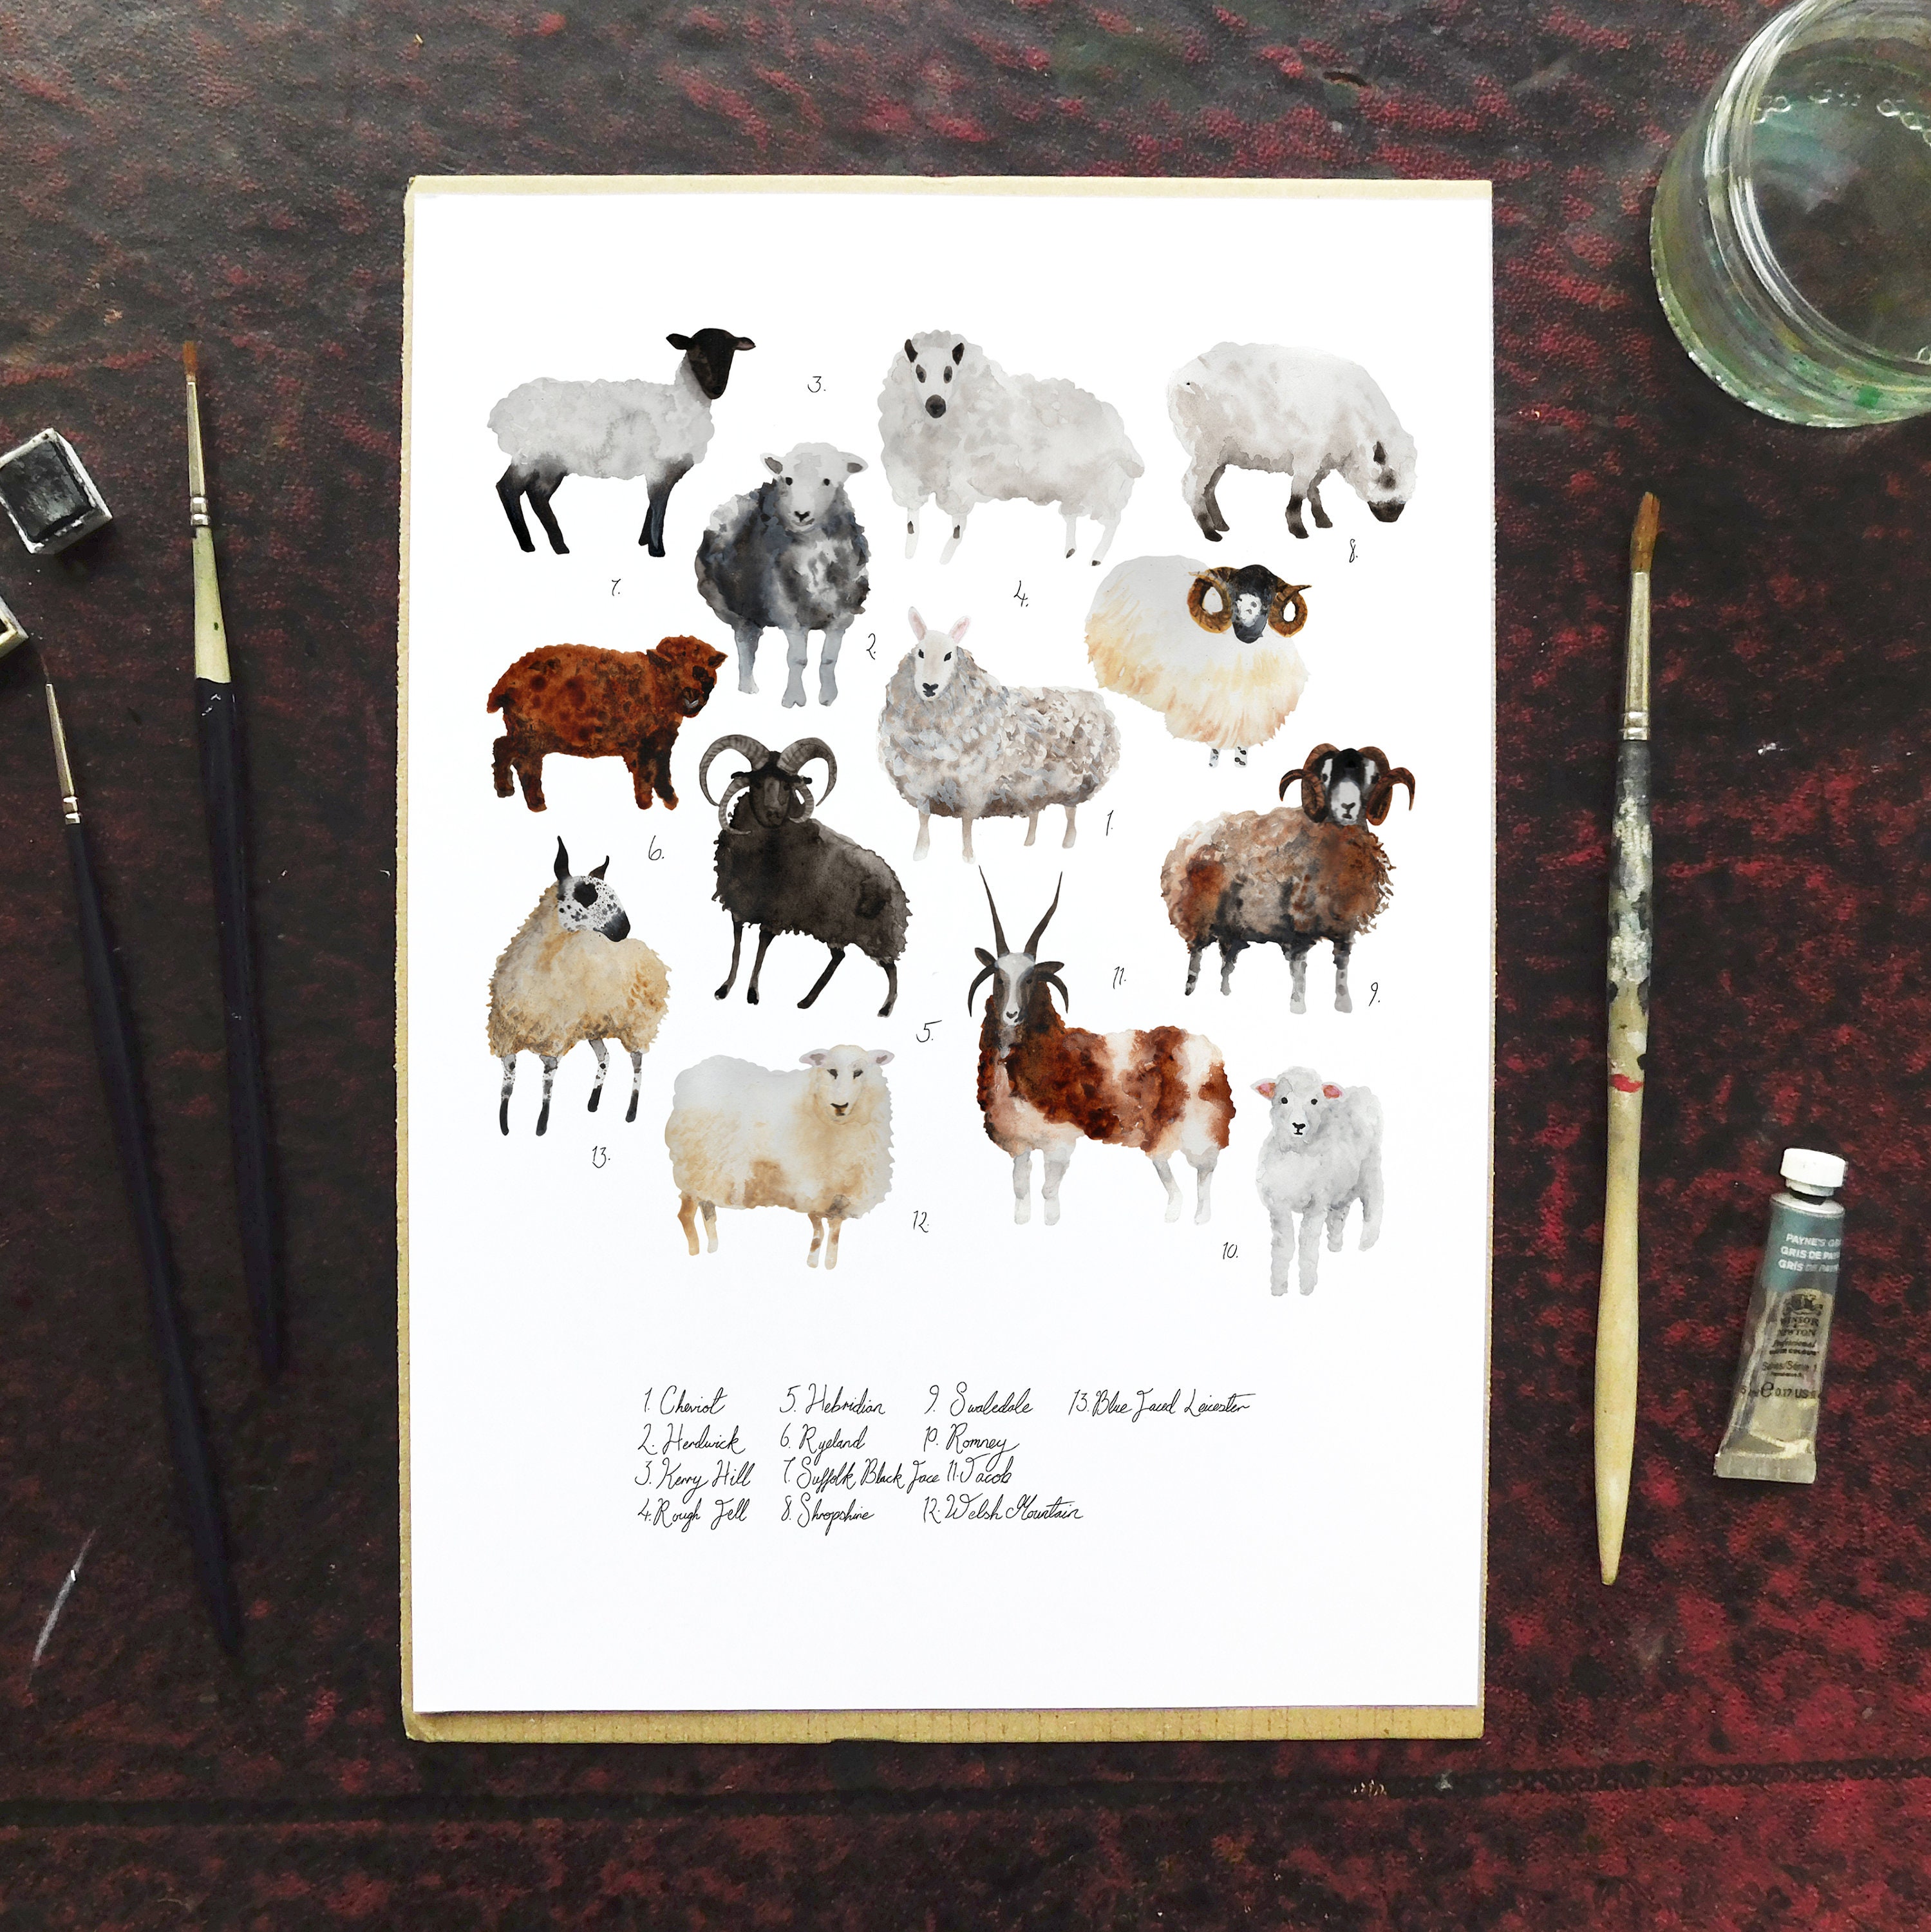 3.
8.
7.
4.
2.
1.
6.
11.
9.
5.
13.
12.
10.
1. Cheviot 5. Hebridian 9. Swaledale 13. Blue Faced Leicester
2. Herdwick 6. Ryeland 10. Romney
3. Kerry Hill 7. Suffolk Black Face 11. Jacob
4. Rough Fell 8. Shropshire 12. Welsh Mountain
PAYNE'S
GRIS DE
GRIS DE
WINSOR
NEWTON
Professional
WATER COLOUR
Series/Série 1
e 0.17 US